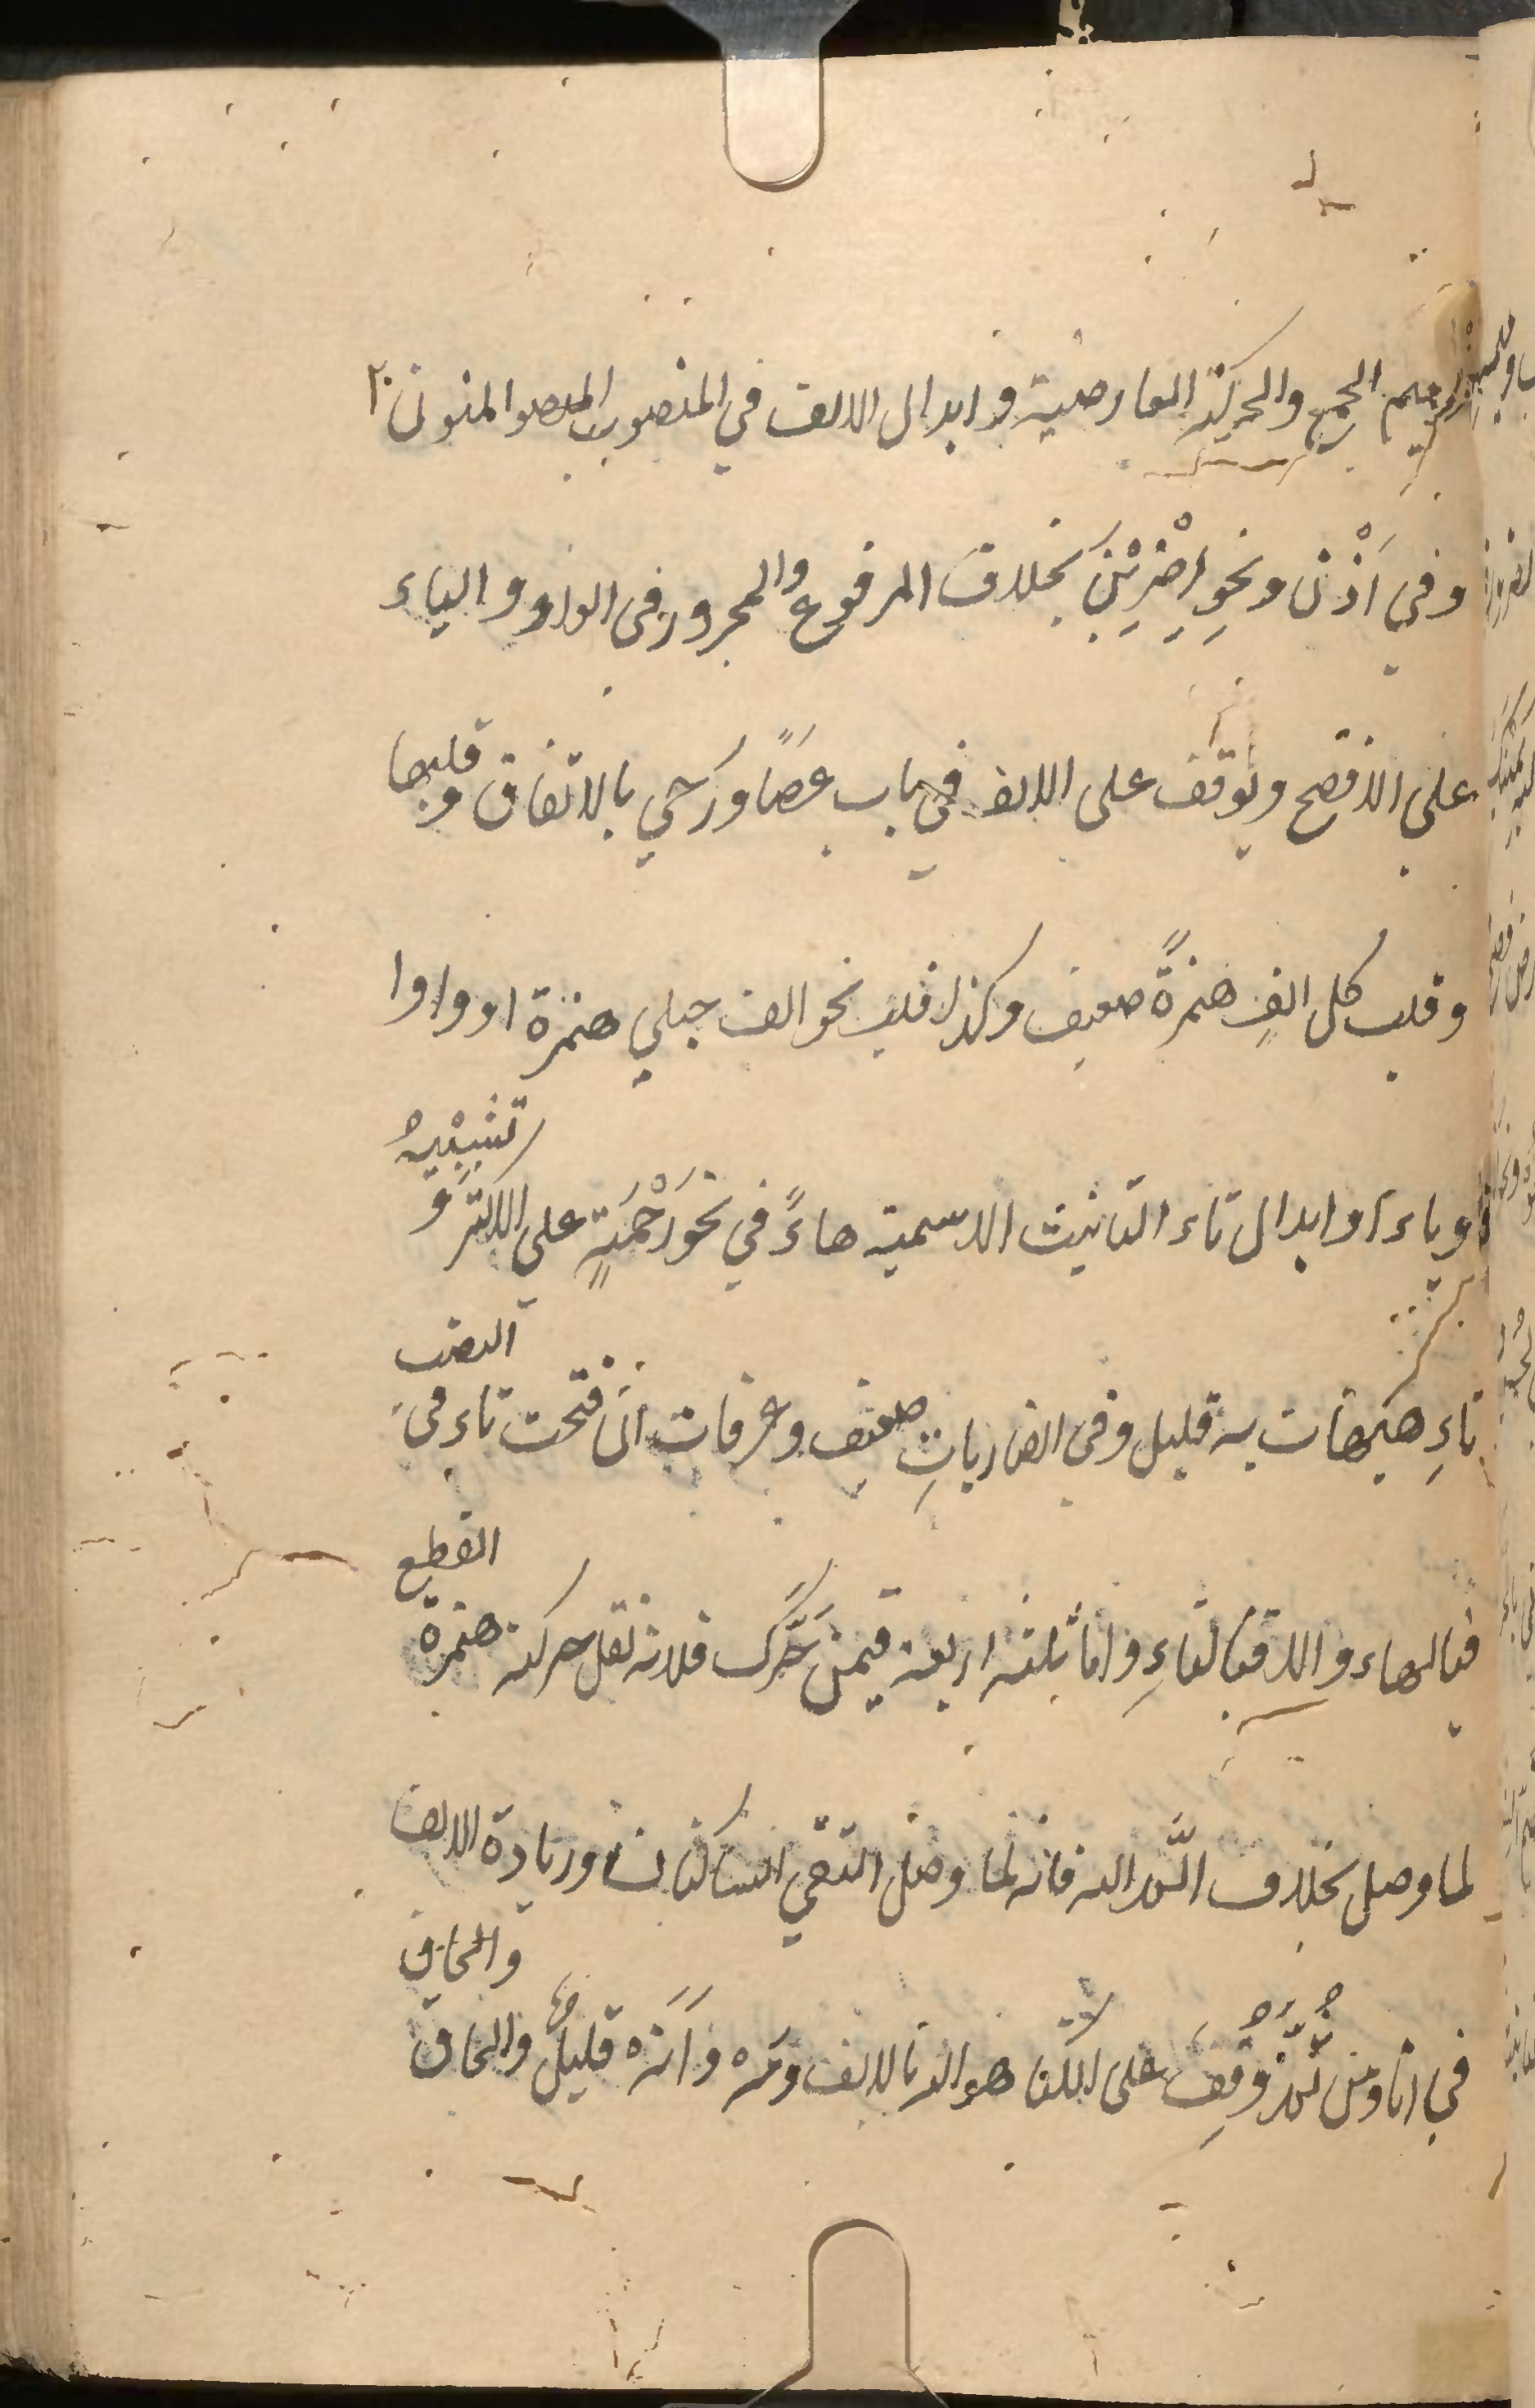 وميم الجمع والحركة العارضية وابدال الالف في المنصوب المنون
وفي اذن ونحو اِضْرِبْنَ بخلاف المرفوع والمجرور في الواو والياء
على الافصح ويوقف على الالف في باب عَصًا ورَحَي بالاتفاق وقلبها
وقلب كل الفٍ همزةً ضعيف وكذا قلب نحو الف حبلي همزة او واوا
او ياء وابدال تاء التانيث الاسمية هاءً في نحو رَحْمَةٍ على الاكثر و تشبِيْهُ
تاءِ هيهات به قليل وفي الضارباتِ ضعيف وعرفات ان فتحت تاءه في النصب
فبالهاء والا فبالتاءِ واما ثلثه اربعة فيمن حَرَّكَ فلانه نقل حركة همزة القطع
لما وصل بخلاف الٓمّ الله فانه لما وصل التقي الساكنان وزيادة الالف
في انا ومن ثَمَّ وُقِفَ على لكنا هو الله بالالف ومَه واَنَه قليل والحاق